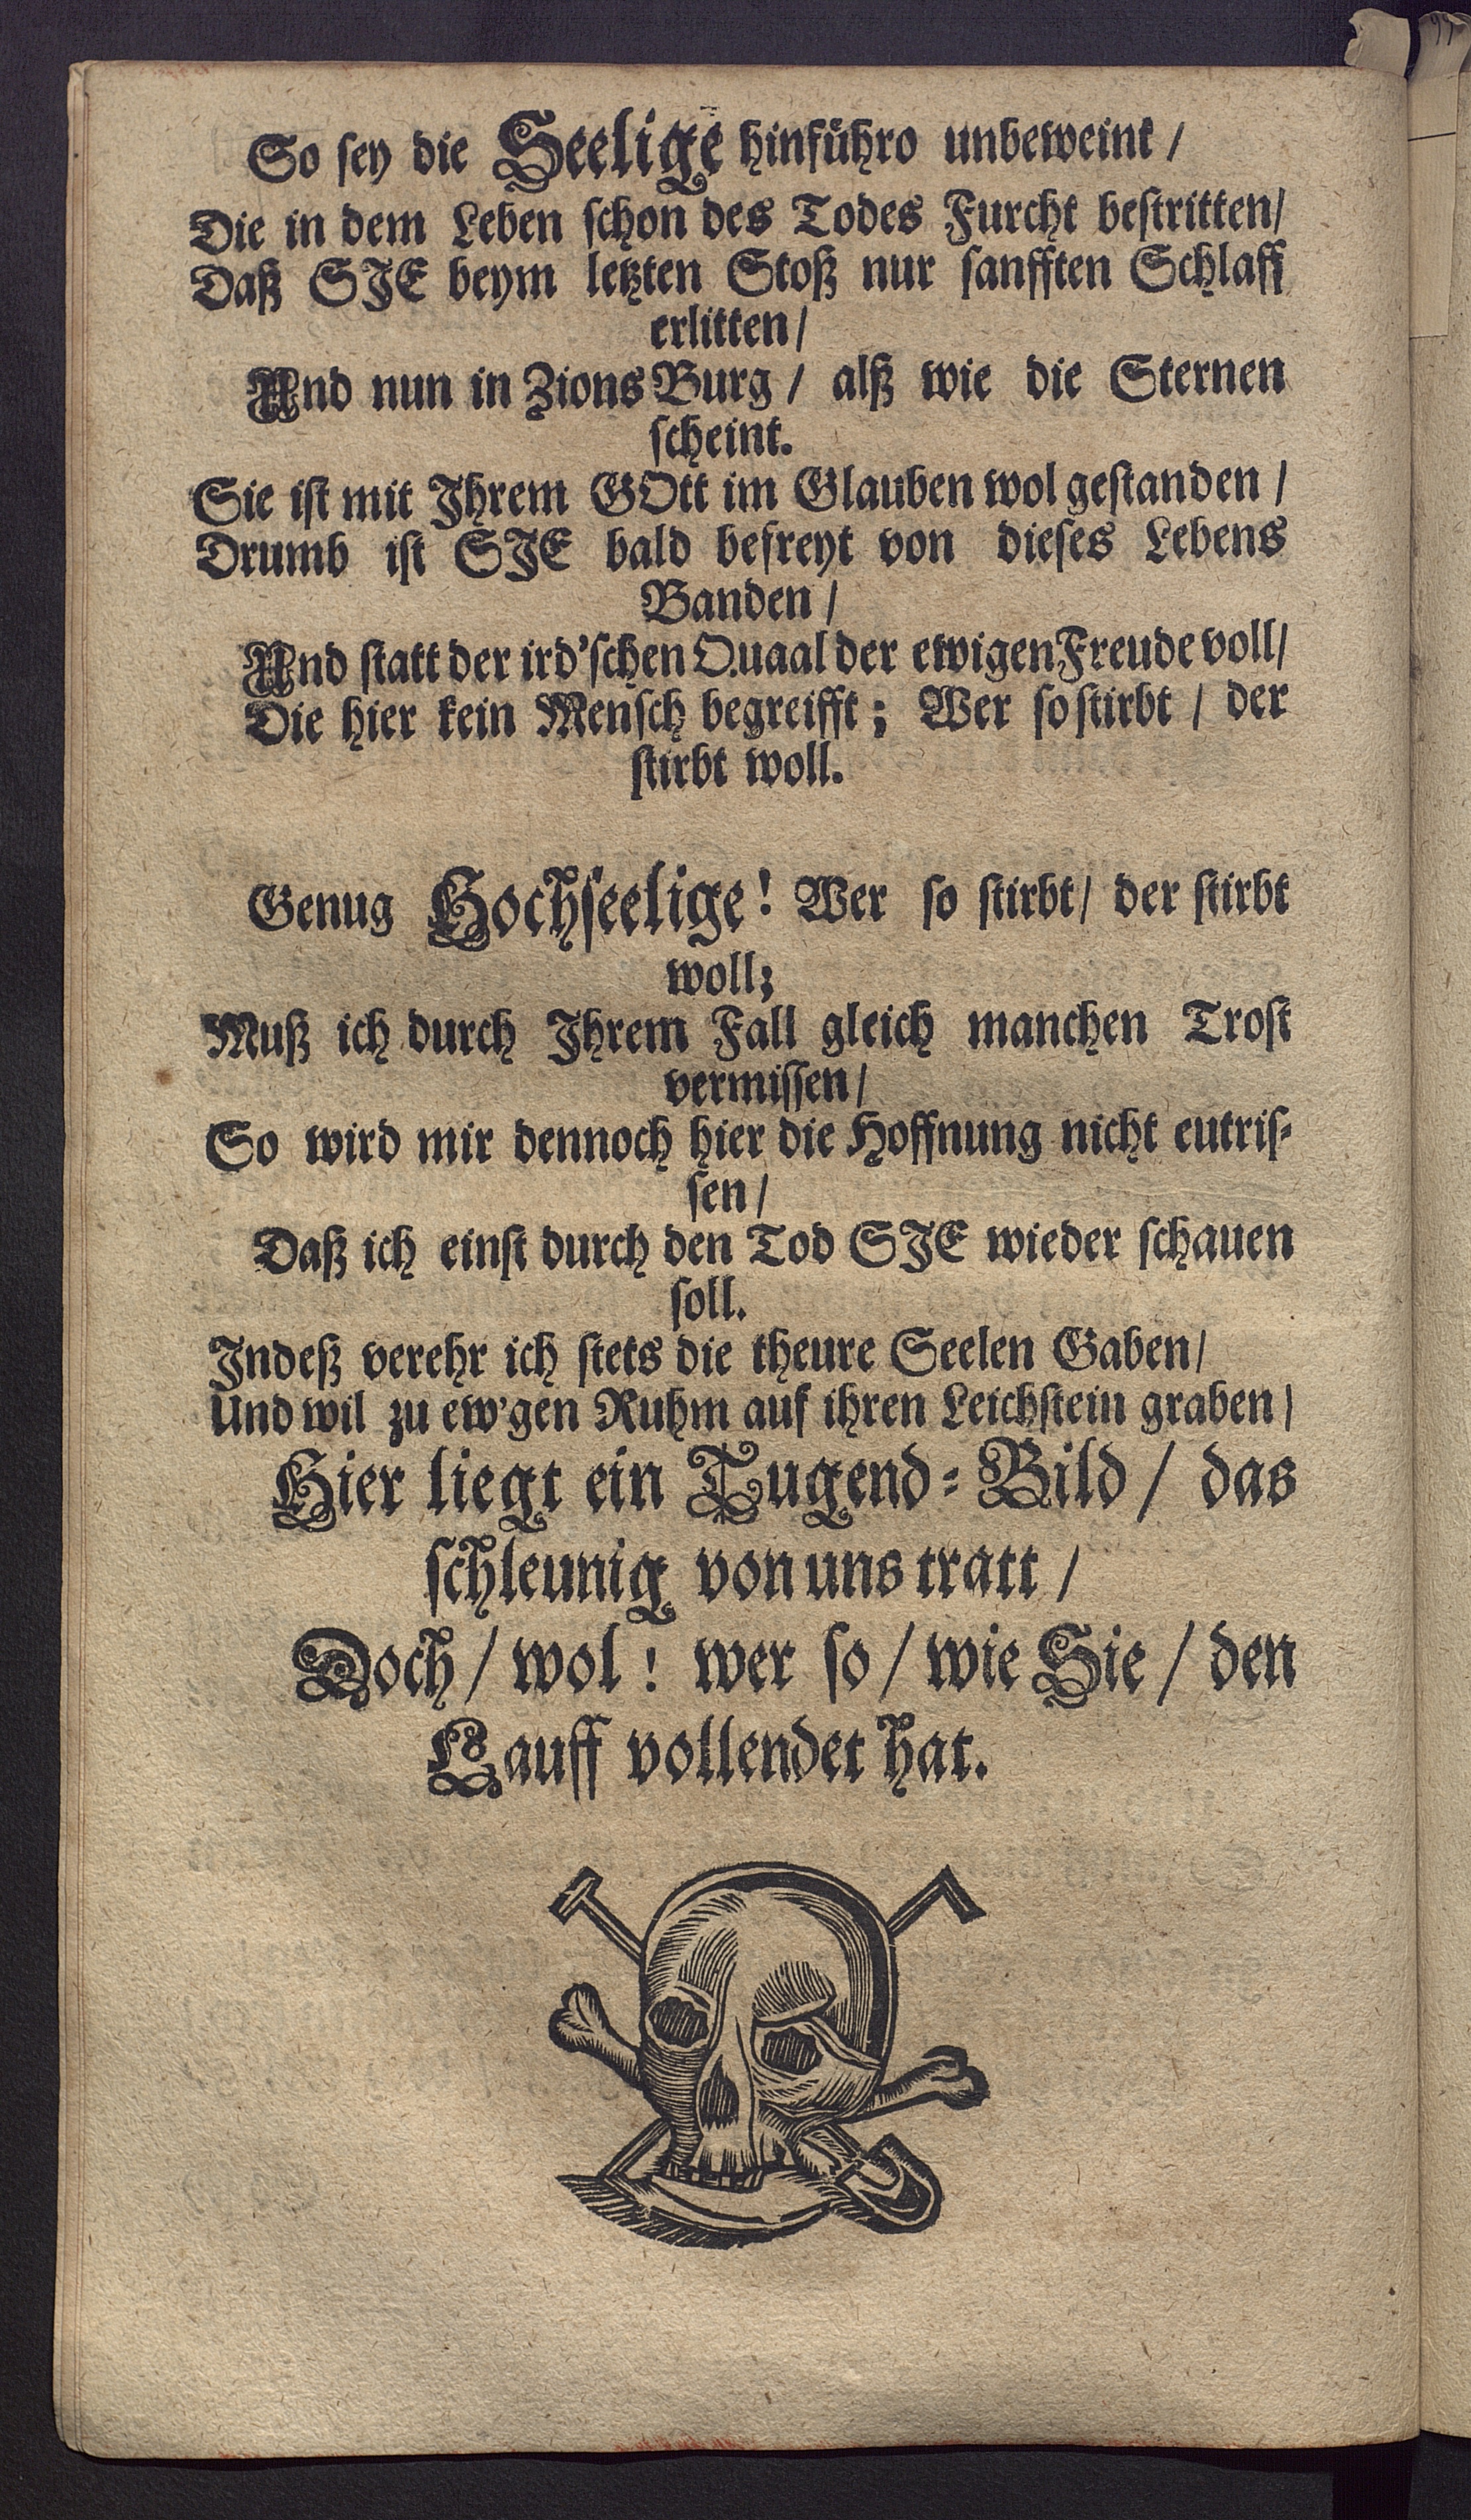 So ſey die Seelige hinführo unbeweint /
Die in dem Leben ſchon des Todes Furcht beſtritten/
Daß SJE beym letzten Stoß nur ſanfften Schlaff
erlitten/
Und nun in Zions Burg / alß wie die Sternen
ſcheint.
Sie iſt mit Jhrem GOtt im Glauben wol geſtanden /
Drumb iſt SJE bald befreyt von dieſes Lebens
Banden /
Und ſtatt der ird'ſchen Quaal der ewigen Freude voll/
Die hier kein Menſch begreifft; Wer ſo ſtirbt / der
ſtirbt woll.
Genug Hochſeelige! Wer ſo ſtirbt/ der ſtirbt
woll;
Muß ich durch Jhrem Fall gleich manchen Troſt
vermiſſen/
So wird mir dennoch hier die Hoffnung nicht eutriſ-
ſen/
Daß ich einſt durch den Tod SJE wieder ſchauen
ſoll.
Jndeß verehr ich ſtets die theure Seelen Gaben/
Und wil zu ew'gen Ruhm auf ihren Leichſtein graben/
Hier liegt ein Tugend-Bild / das
ſchleunig von uns tratt /
Doch / wol! wer ſo / wie Sie / den
Lauff vollendet hat.